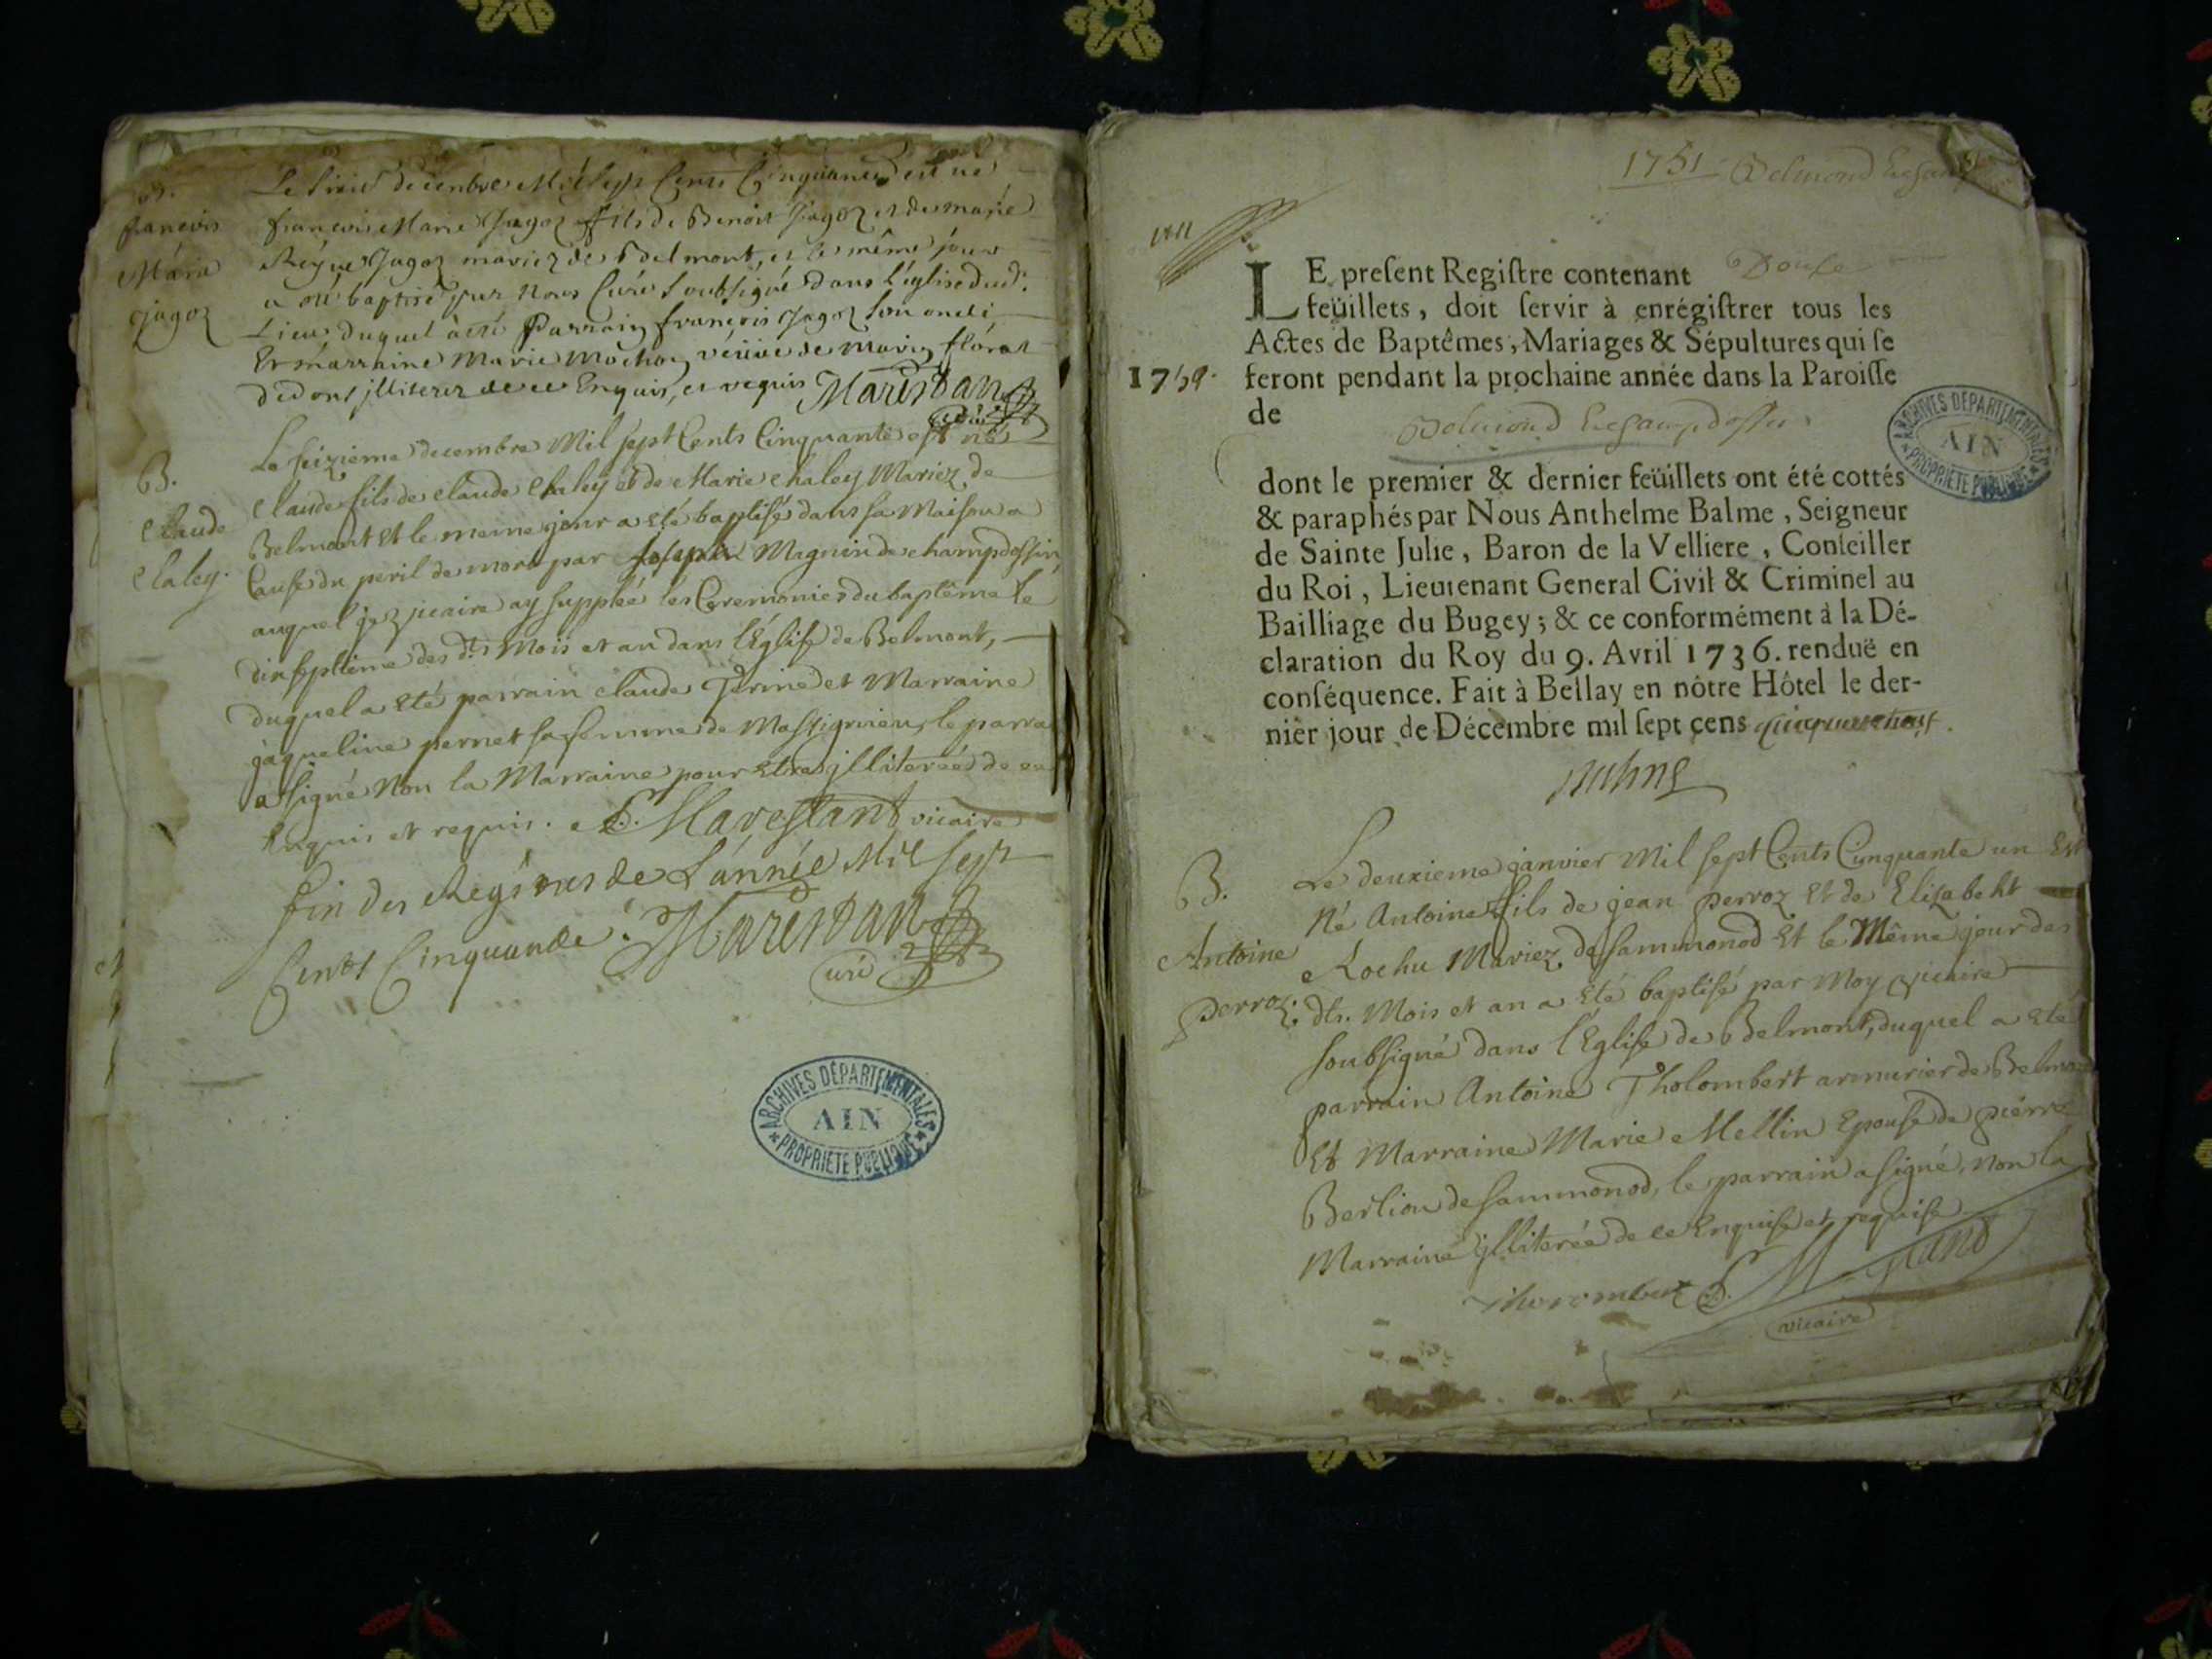 B.
francois
Marie
Jagoz
decembre Mil sept Cents Cinquante est né
francois Marie Jagoz fils de Benoit Jagoz et de marie
Jagoz mariez de Belmont, et le même jour
a été baptisé par Nous Curé Soubsigné dans l'église dud:
Lieu, duquel a été Parrain francois Jagoz son oncle
Et marraine Marie Mochon veuve de
illiterez de ce Enquis, et requis Marestan
curé
B.
Claude
Chaley.
Le seizieme decembre Mil sept Cents Cinquante est né
Claude fils de Claude Chaley et de Marie Chaley Mariez de
Belmont Et le meme jour a eté baptisé dans sa Maison a
Cause du peril de mort par Joseph Magnin de champdossin,
auquel je vicaire ay supplée les Ceremonies du baptême le
dixseptieme des dts Mois et an dans l'Eglise de Belmont,
duquel a eté parrain claude Perinet et Marraine
jaqueline pernet sa femme de Massignieu, le parra
a signé Non la Marraine pour etre illiterée de ce
Enquis et requis. Marestant vicaire
fin des Regîtres de L'année Mil sept
Cents Cinquante. Marestan
Curé
ARCHIVES DÉPARTEMENTALES
AIN
PROPRIÉTÉ PUBLIQUE
1751 Belmond
LE present Registre contenant Douze
feüillets, doit servir à enrégistrer tous les
Actes de Baptêmes, Mariages & Sépultures qui se
feront pendant la prochaine année dans la Paroisse
de Belmond
dont le premier & dernier feüillets ont été cottés
& paraphés par Nous Anthelme Balme, Seigneur
de Sainte Julie, Baron de la Velliere, Conseiller
du Roi, Lieutenant General Civil & Criminel au
Bailliage du Bugey; & ce conformément à la Dé-
claration du Roy du 9. Avril 1736. renduë en
conséquence. Fait à Bellay en nôtre Hôtel le der-
nier jour de Décembre mil sept cens
Balme
ARCHIVES DÉPARTEMENTALES
AIN
PROPRIÉTÉ PUBLIQUE
B.
Antoine
perroz.
Le deuxieme janvier Mil sept Cents Cinquante un Est
Né Antoine fils de jean perroz Et de Elizabeht
Rochu Mariez de sammonod Et le Même jour des
dts. Mois et an a eté baptisé par Moy vicaire
soubsigné dans l'Eglise de Belmont, duquel a eté
parrain Antoine Tholombert armurier de Belmo
Et Marraine Marie Mellin Epouse de pierre
Berlion de sammonod, le parrain a signé, non la
Marraine illiterée de ce Enquise et requise
Thorombert
vicaire